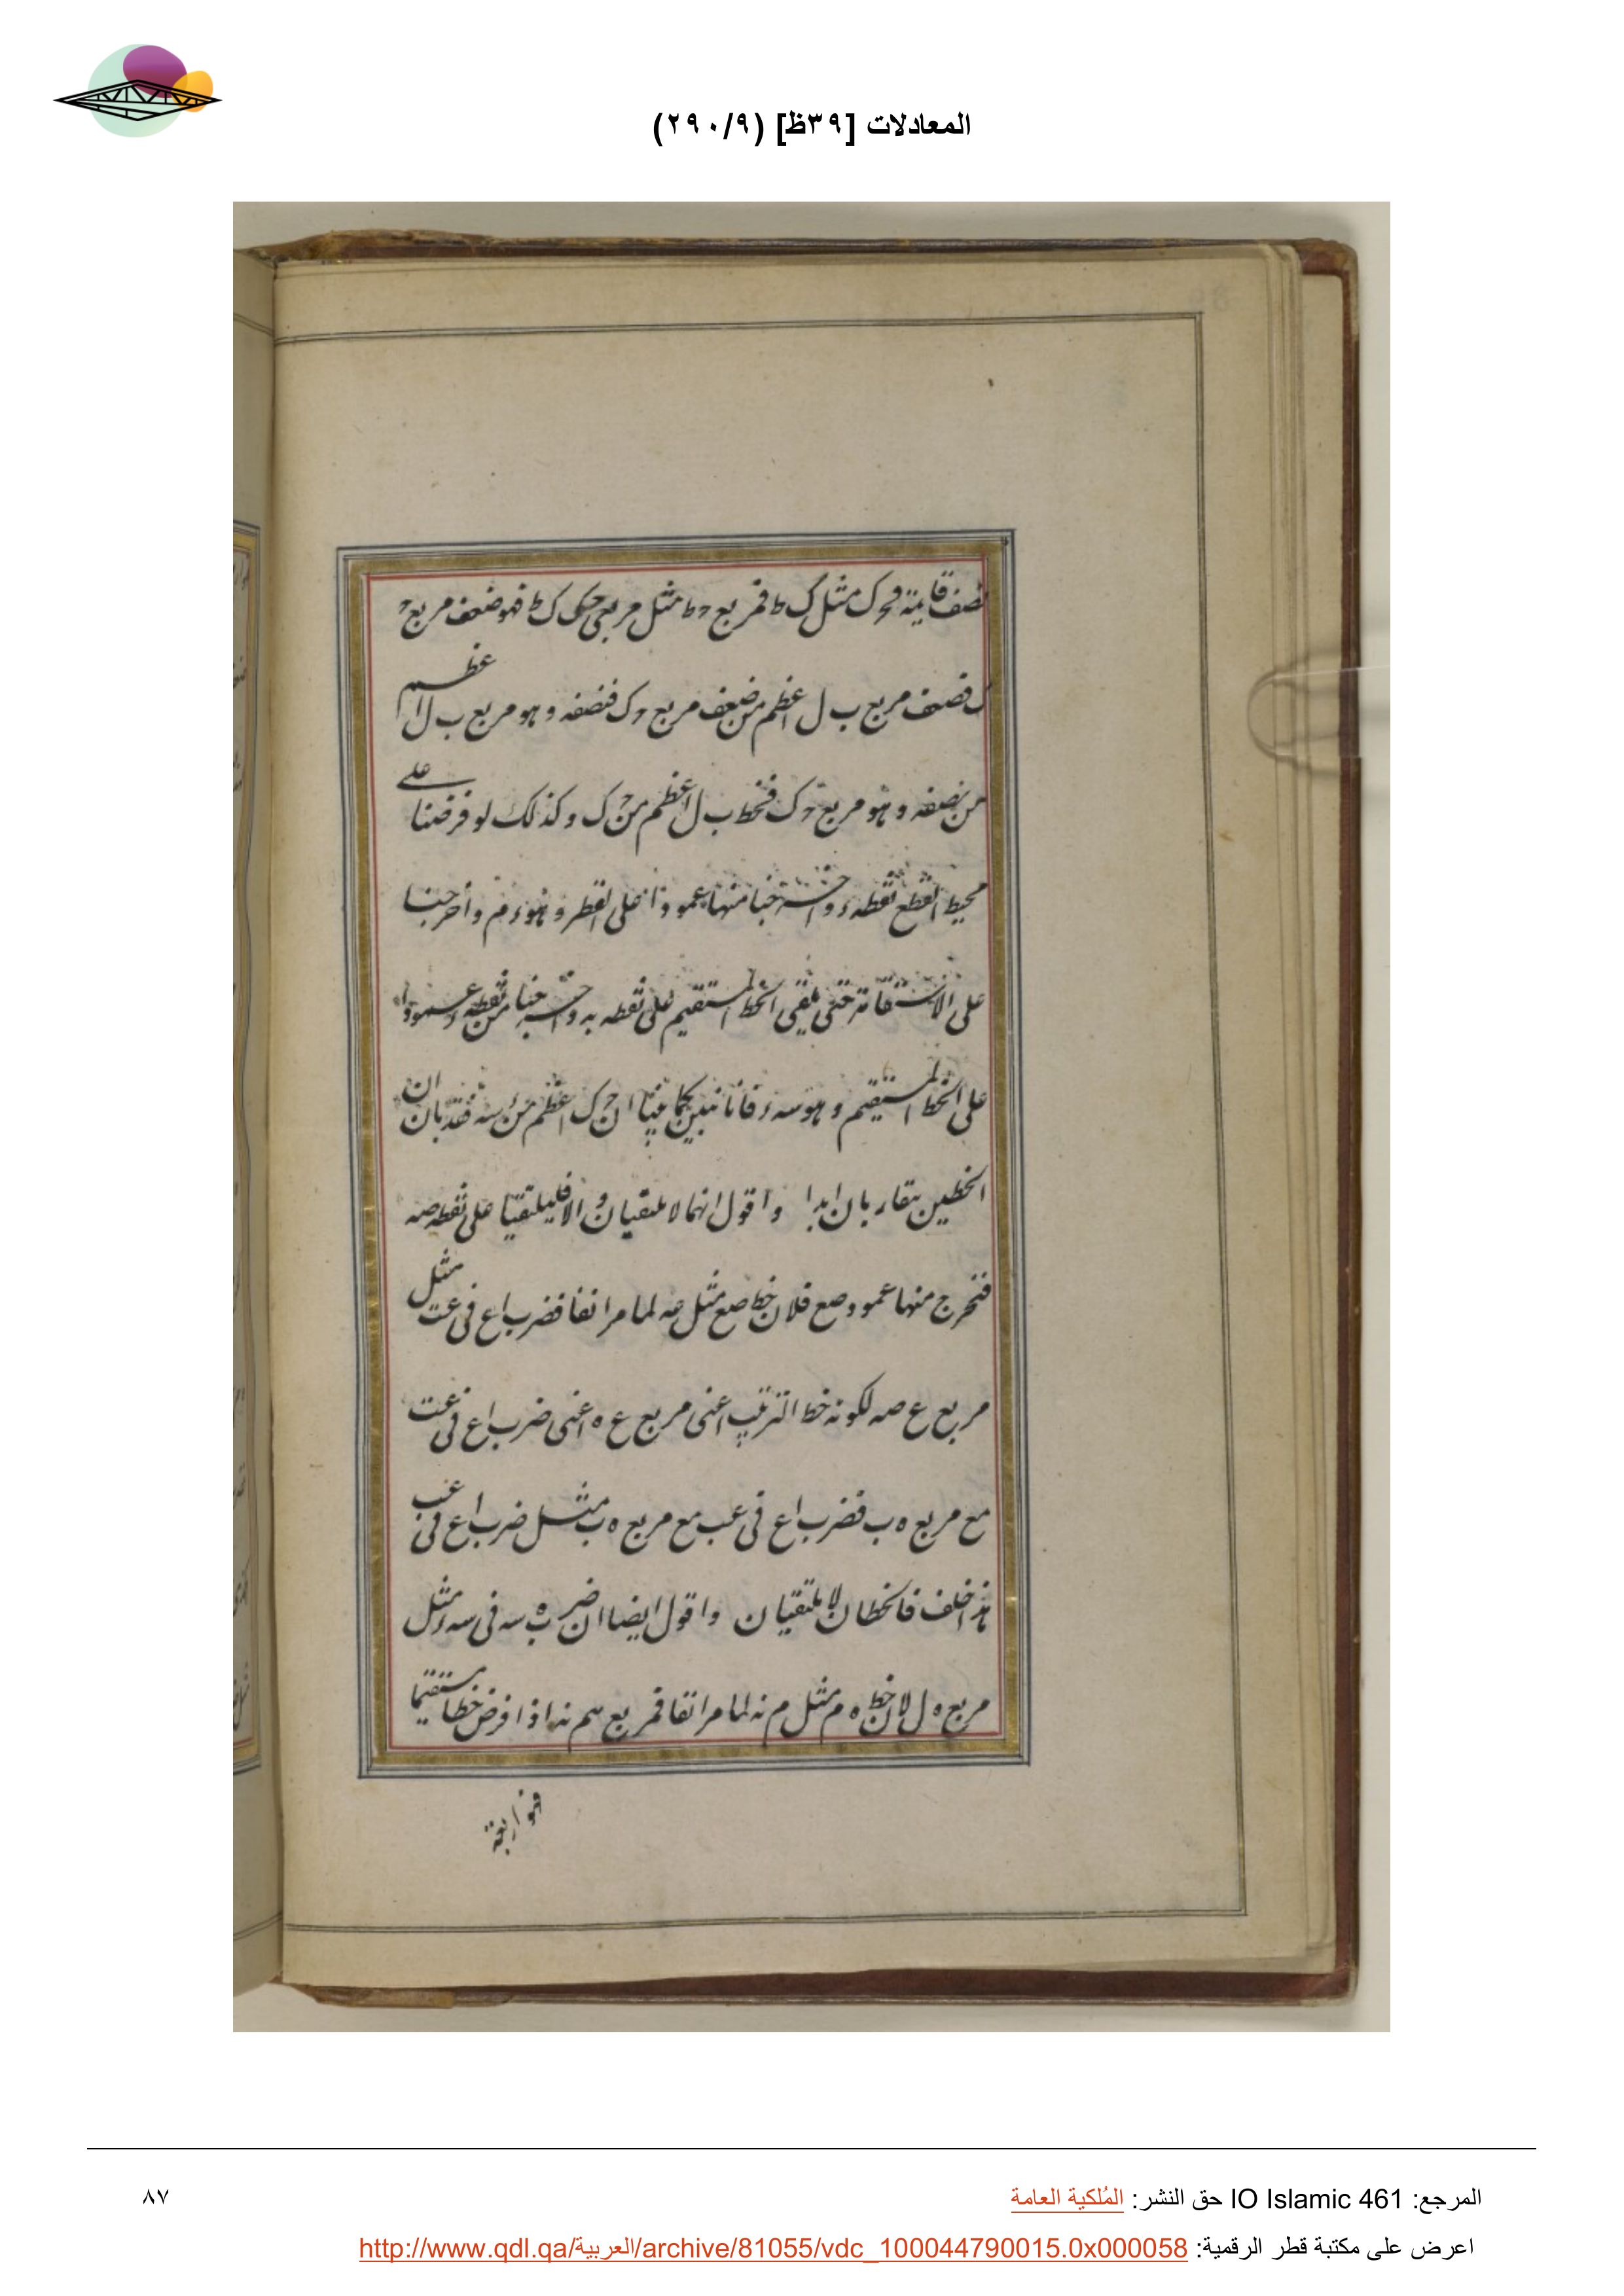 المعادلات [٣٩ظ] (٢٩٠/٩)
نصف قايمة و حـ ک مثل ک ط فمربع حـ ط مثل مربعي حـ ک ک ط فهو ضعف مربع حـ
ک فضعف مربع ب ل اعظم من ضعف مربع حـ ک فنصفه و هو مربع ب ل اعظم
من نصفه و هو مربع حـ ک فخط ب ل اعظم من حـ ک و كذلك لو فرضنا على
محيط القطع نقطة ء و اخرجنا منها عمودا على القطر و هو ء م و أخرجنا
على الاستقامة حتى يلقى الخط المستقيم على نقطة نه و اخرجنا من نقطة ء عمودا
على الخط المستقيم و هو سه ء فانا نبين كما بينا ان حـ ک اعظم من ء سه فقد بان ان
الخطين يتقاربان ابدا و اقول انهما لا يلتقيان و الا فليلتقيا على نقطة صه
فنخرج منها عمود صع فلان خط صع مثل عه لما مر انفا فضرب اع في عت مثل
مربع ع صه لكونه خط الترتيب اعنى مربع ع ه اعنى ضرب اع في عت
مع مربع ه ب فضرب اع في عب مع مربع ه ب مثل ضرب اع في عب
هذا خلف فالخطان لا يلتقيان و اقول ايضا ان ضرب ه سه في سه ء مثل
مربع ه ل لان خط ه م مثل م نه لما مر انفا فمربع هم نه اذا فرض خطا مستقيما
فهو اربعة
المرجع: IO Islamic 461 حق النشر: المُلكية العامة
٨٧
اعرض على مكتبة قطر الرقمية: http://www.qdl.qa/العربية/archive/81055/vdc_100044790015.0x000058